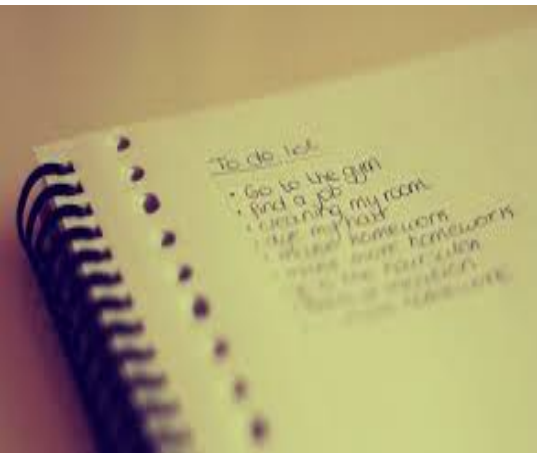 To do list
• Go to the gym
• find a job
• cleaning my room
• dye my hair
• make homework
• make more homework
the hair salon